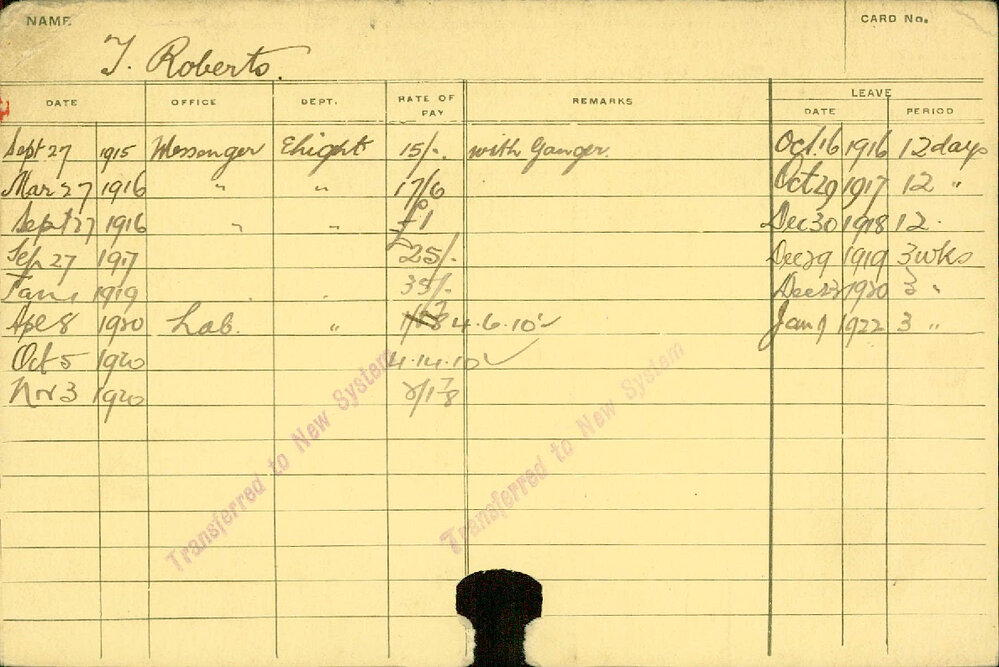 NAME CARD No.
T. Roberts.
DATE OFFICE DEPT. RATE OF PAY REMARKS LEAVE
DATE PERIOD
Sept 27 1915 Messenger Ehight 15/-. with Ganger. Oct. 16 1916 12 days
Mar 27 1916 " " 17/6 Oct 29 1917 12 "
Sept 27 1916 " " £1 Dec 30 1918 12.
Sep 27 1917 25/- Dec 29 1919 3 wks
Jan 1 1919 35/- Dec 23 1920 3 "
Apl 8 1920 Lab. " 4.6.10 ✓ Jan 9 1922 3 "
Oct 5 1920 4.14.10 ✓
Nov 3 1920
Transferred to New System
Transferred to New System